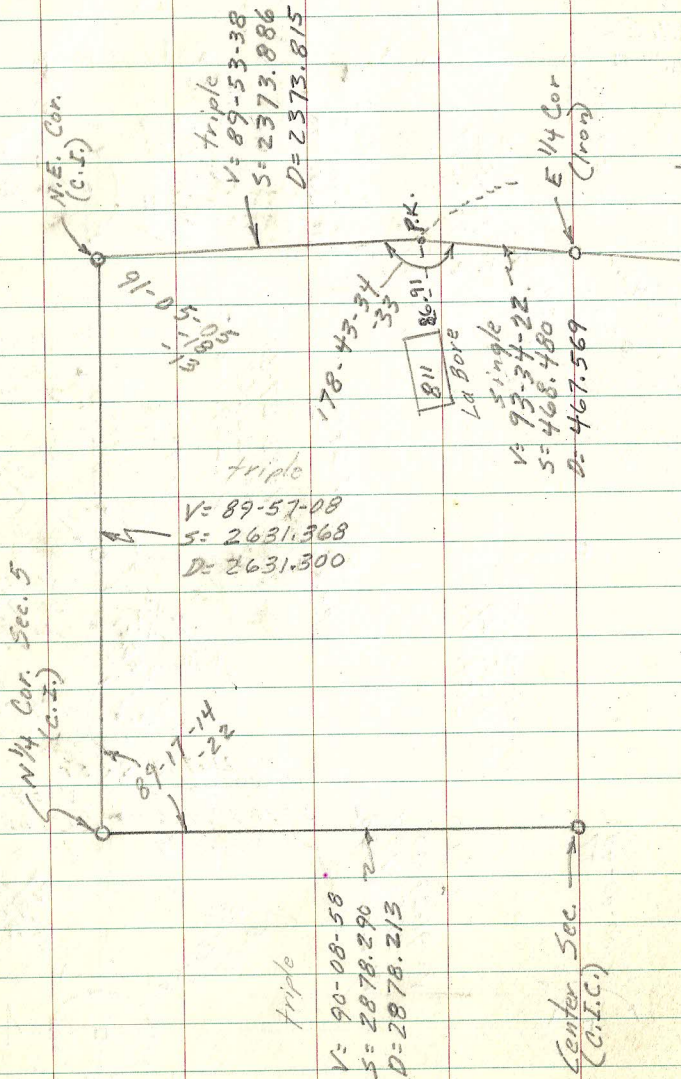 N.E. Cor.
(C.I.)
triple
V= 89-53-38
S= 2373.886
D= 2373.815
E 1/4 Cor
(Iron)
P.K.
86.91
811
La Bore
178-43-34
-33
single
V= 93-34-22
S= 468.480
D= 467.569
triple
V= 89-57-08
S= 2631.368
D= 2631.300
N 1/4 Cor. Sec. 5
(C.I.)
89-17-14
-22
triple
V= 90-08-58
S= 2878.290
D= 2878.213
Center Sec.
(C.I.C.)